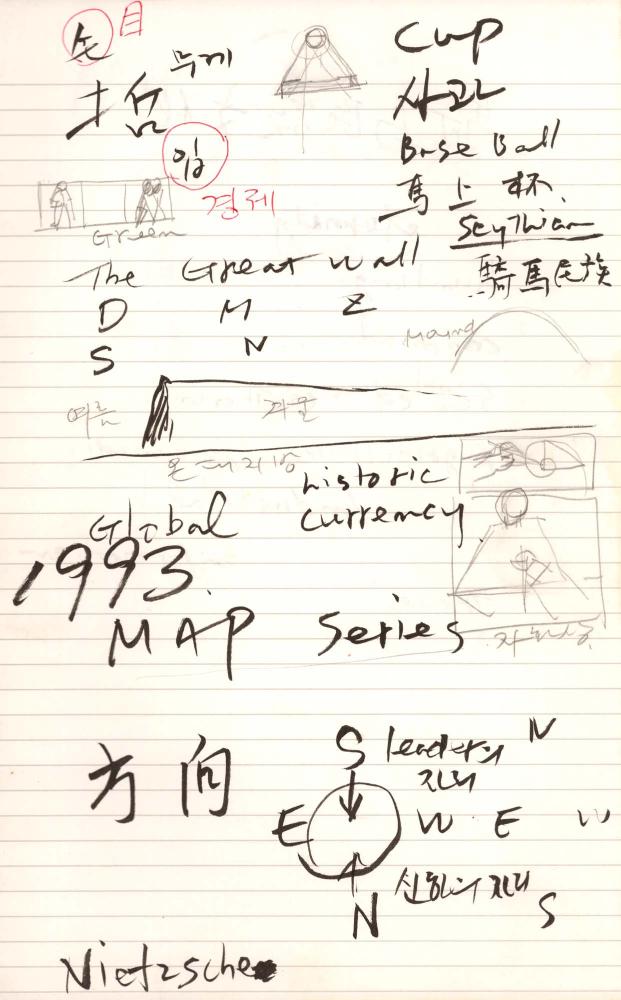 손 目
무게
哲
입
경제
Cup
사과
Base Ball
馬上杯
Scythian
騎馬民族
Green
The Great Wall
D M Z
S N
여름 겨울
온대지방
historic
Global currency
1993
MAP Series
자화상
方向
S leader의 N
진리
E W E W
신하의 진리
N S
Nietzsche